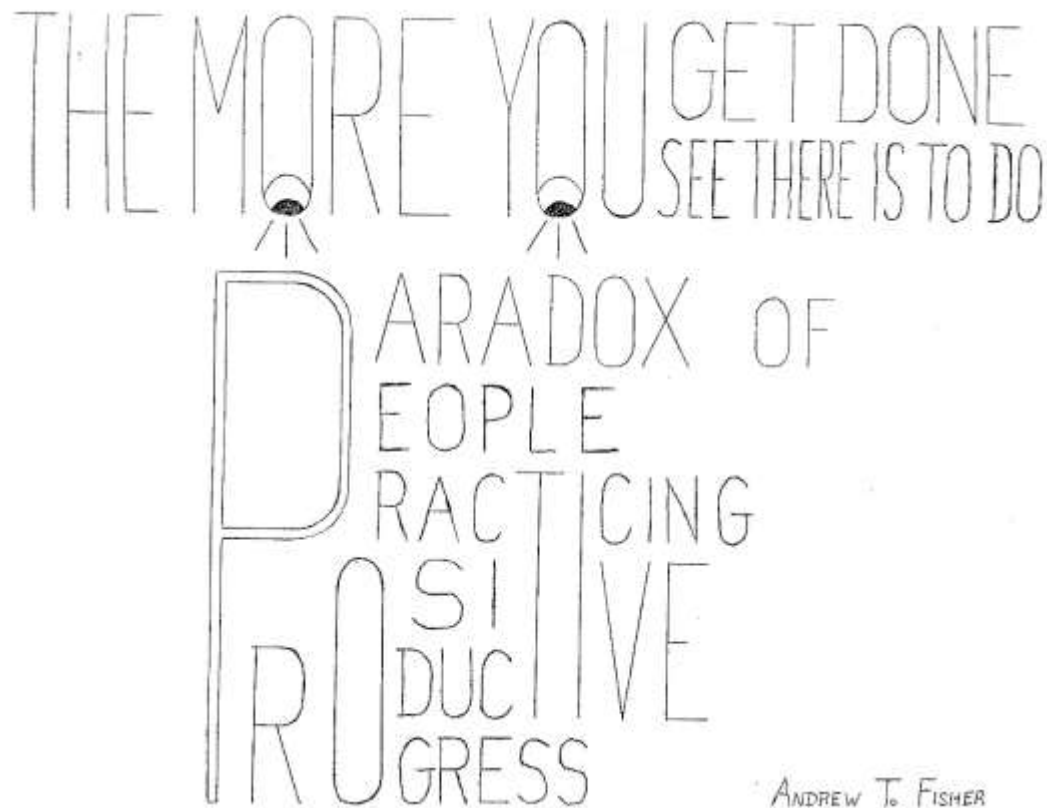 THE MORE YOU GET DONE
SEE THERE IS TO DO
PARADOX OF
EOPLE
RACTICING
OSITIVE
RODUCTIVE
ROGRESS
ANDREW T. FISHER